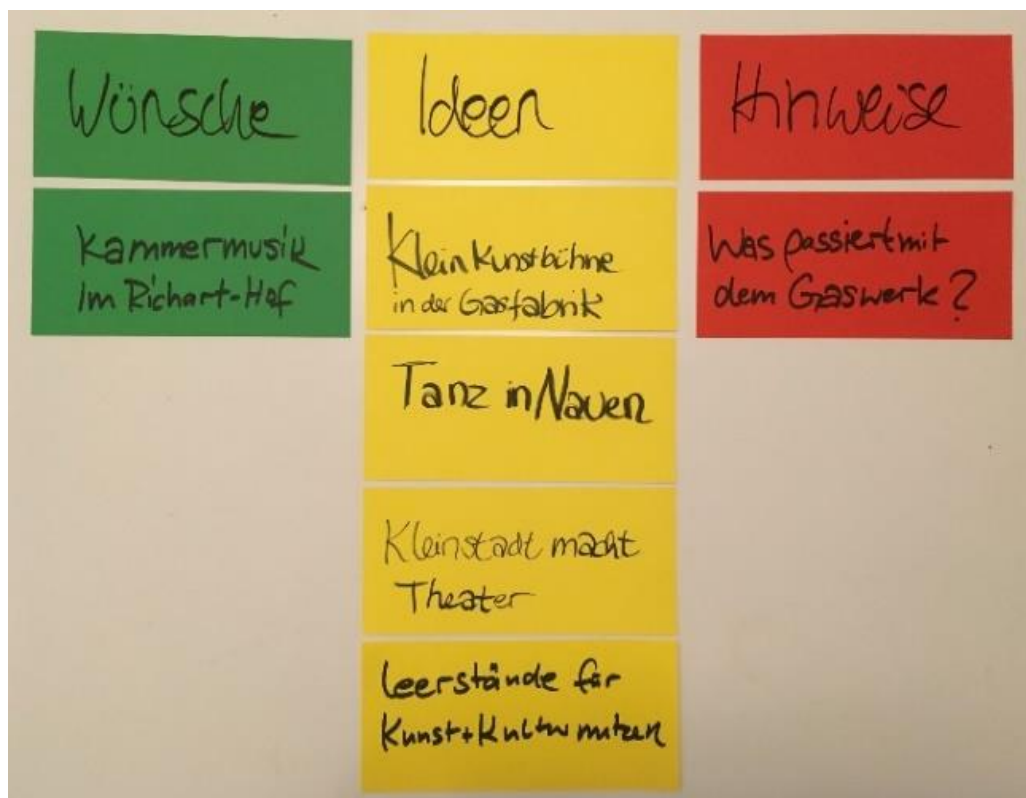 Wünsche
Kammermusik
im Richart-Hof
Ideen
Kleinkunstbühne
in der Gasfabrik
Tanz in Nauen
Kleinstadt macht
Theater
Leerstände für
Kunst+Kultur nutzen
Hinweise
Was passiert mit
dem Gaswerk?